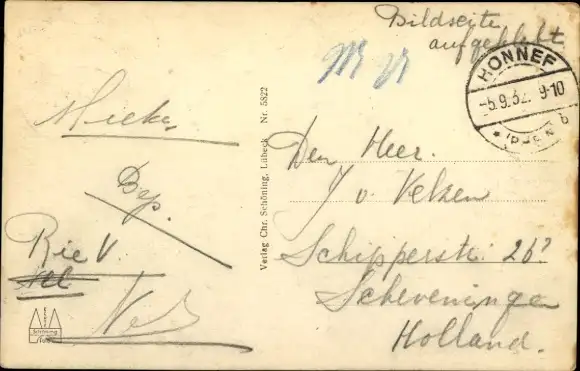 Bildseite
aufgeklebt
HONNEF
-5.9.32. 9-10
b
Mieke
Bep.
Rie V.
Nel
Verlag Chr. Schöning, Lübeck Nr. 5822
Den Heer.
J v. Velzen
Schipperstr: 26?
Scheveningen
Holland.
Schöning